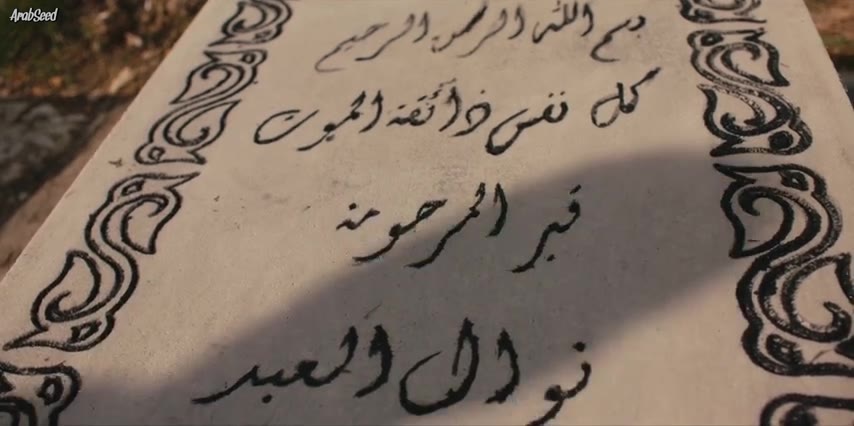 ArabSeed
بسم الله الرحمن الرحيم
كل نفس ذائقة الموت
قبر المرحومة
نوال العبد